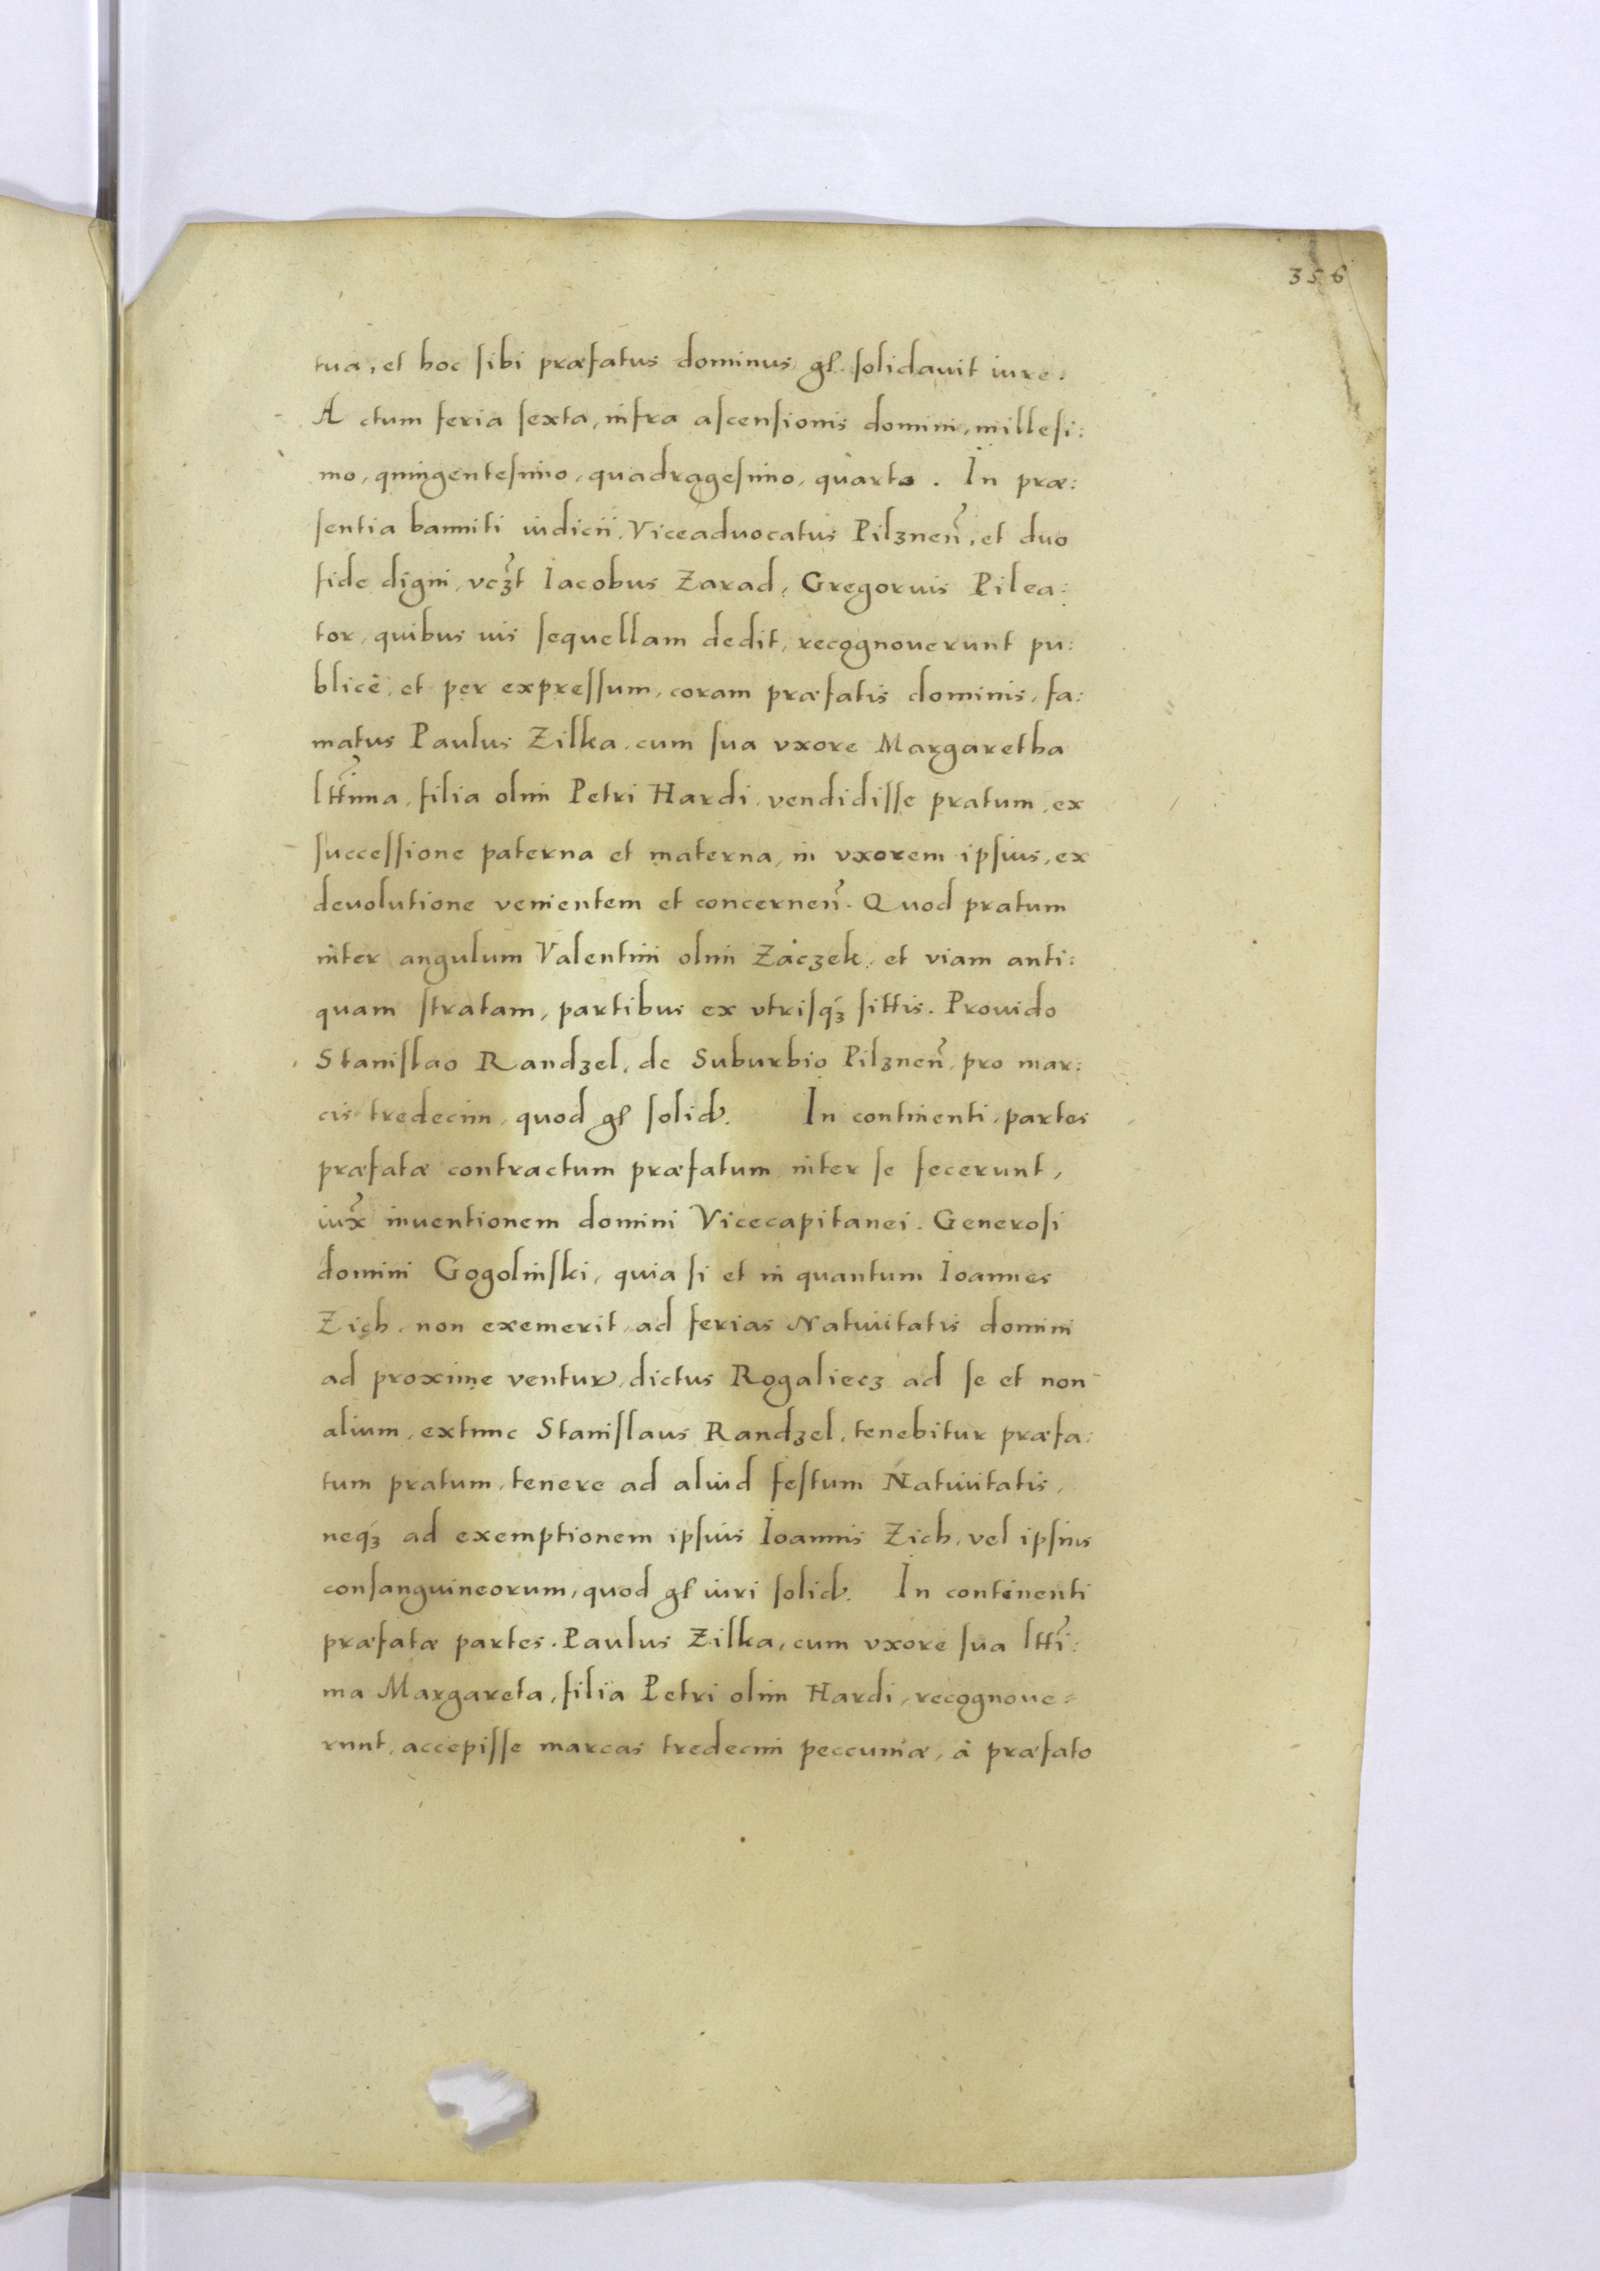 356
tua, et hoc sibi præfatus dominus gł solidauit iure.
Actum feria sexta, infra ascensionis domini, millesi:
mo, quingentesimo, quadragesimo, quarto. In præ:
sentia banniti iudicii, Viceaduocatus Pilznen̄, et duo
fide digni, vcȝt Iacobus Zarad, Gregorius Pilea:
tor, quibus ius sequellam dedit, recognouerunt pu:
blicè, et per expressum, coram præfatis dominis, fa:
matus Paulus Zilka, cum sua vxore Margaretha
lttima, filia olim Petri Hardi, vendidisse pratum, ex
successione paterna et materna, in vxorem ipsius, ex
deuolutione venientem et concernen̄. Quod pratum
inter angulum Valentini olim Záczek, et viam anti:
quam stratam, partibus ex vtrisqȝ sittis. Prouido
Stanislao Randzel, de Suburbio Pilznen̄, pro mar:
cis tredecim, quod gł solid. In continenti, partes
præfatæ contractum præfatum inter se fecerunt,
iux̄ inuentionem domini Vicecapitanei. Generosi
domini Gogolinski, quia si et in quantum Ioannes
Zich, non exemerit, ad ferias Natiuitatis domini
ad proxime ventur, dictus Rogaliecz ad se et non
alium, extunc Stanislaus Randzel, tenebitur præfa:
tum pratum, tenere ad aliud festum Natiuitatis,
neqȝ ad exemptionem ipsius Ioannis Zich, vel ipsius
consanguineorum, quod gł iuri solid. In continenti
præfatæ partes. Paulus Zilka, cum vxore sua ltti:
ma Margareta, filia Petri olim Hardi, recognoue=
runt, accepisse marcas tredecim peccuniæ, à præfato